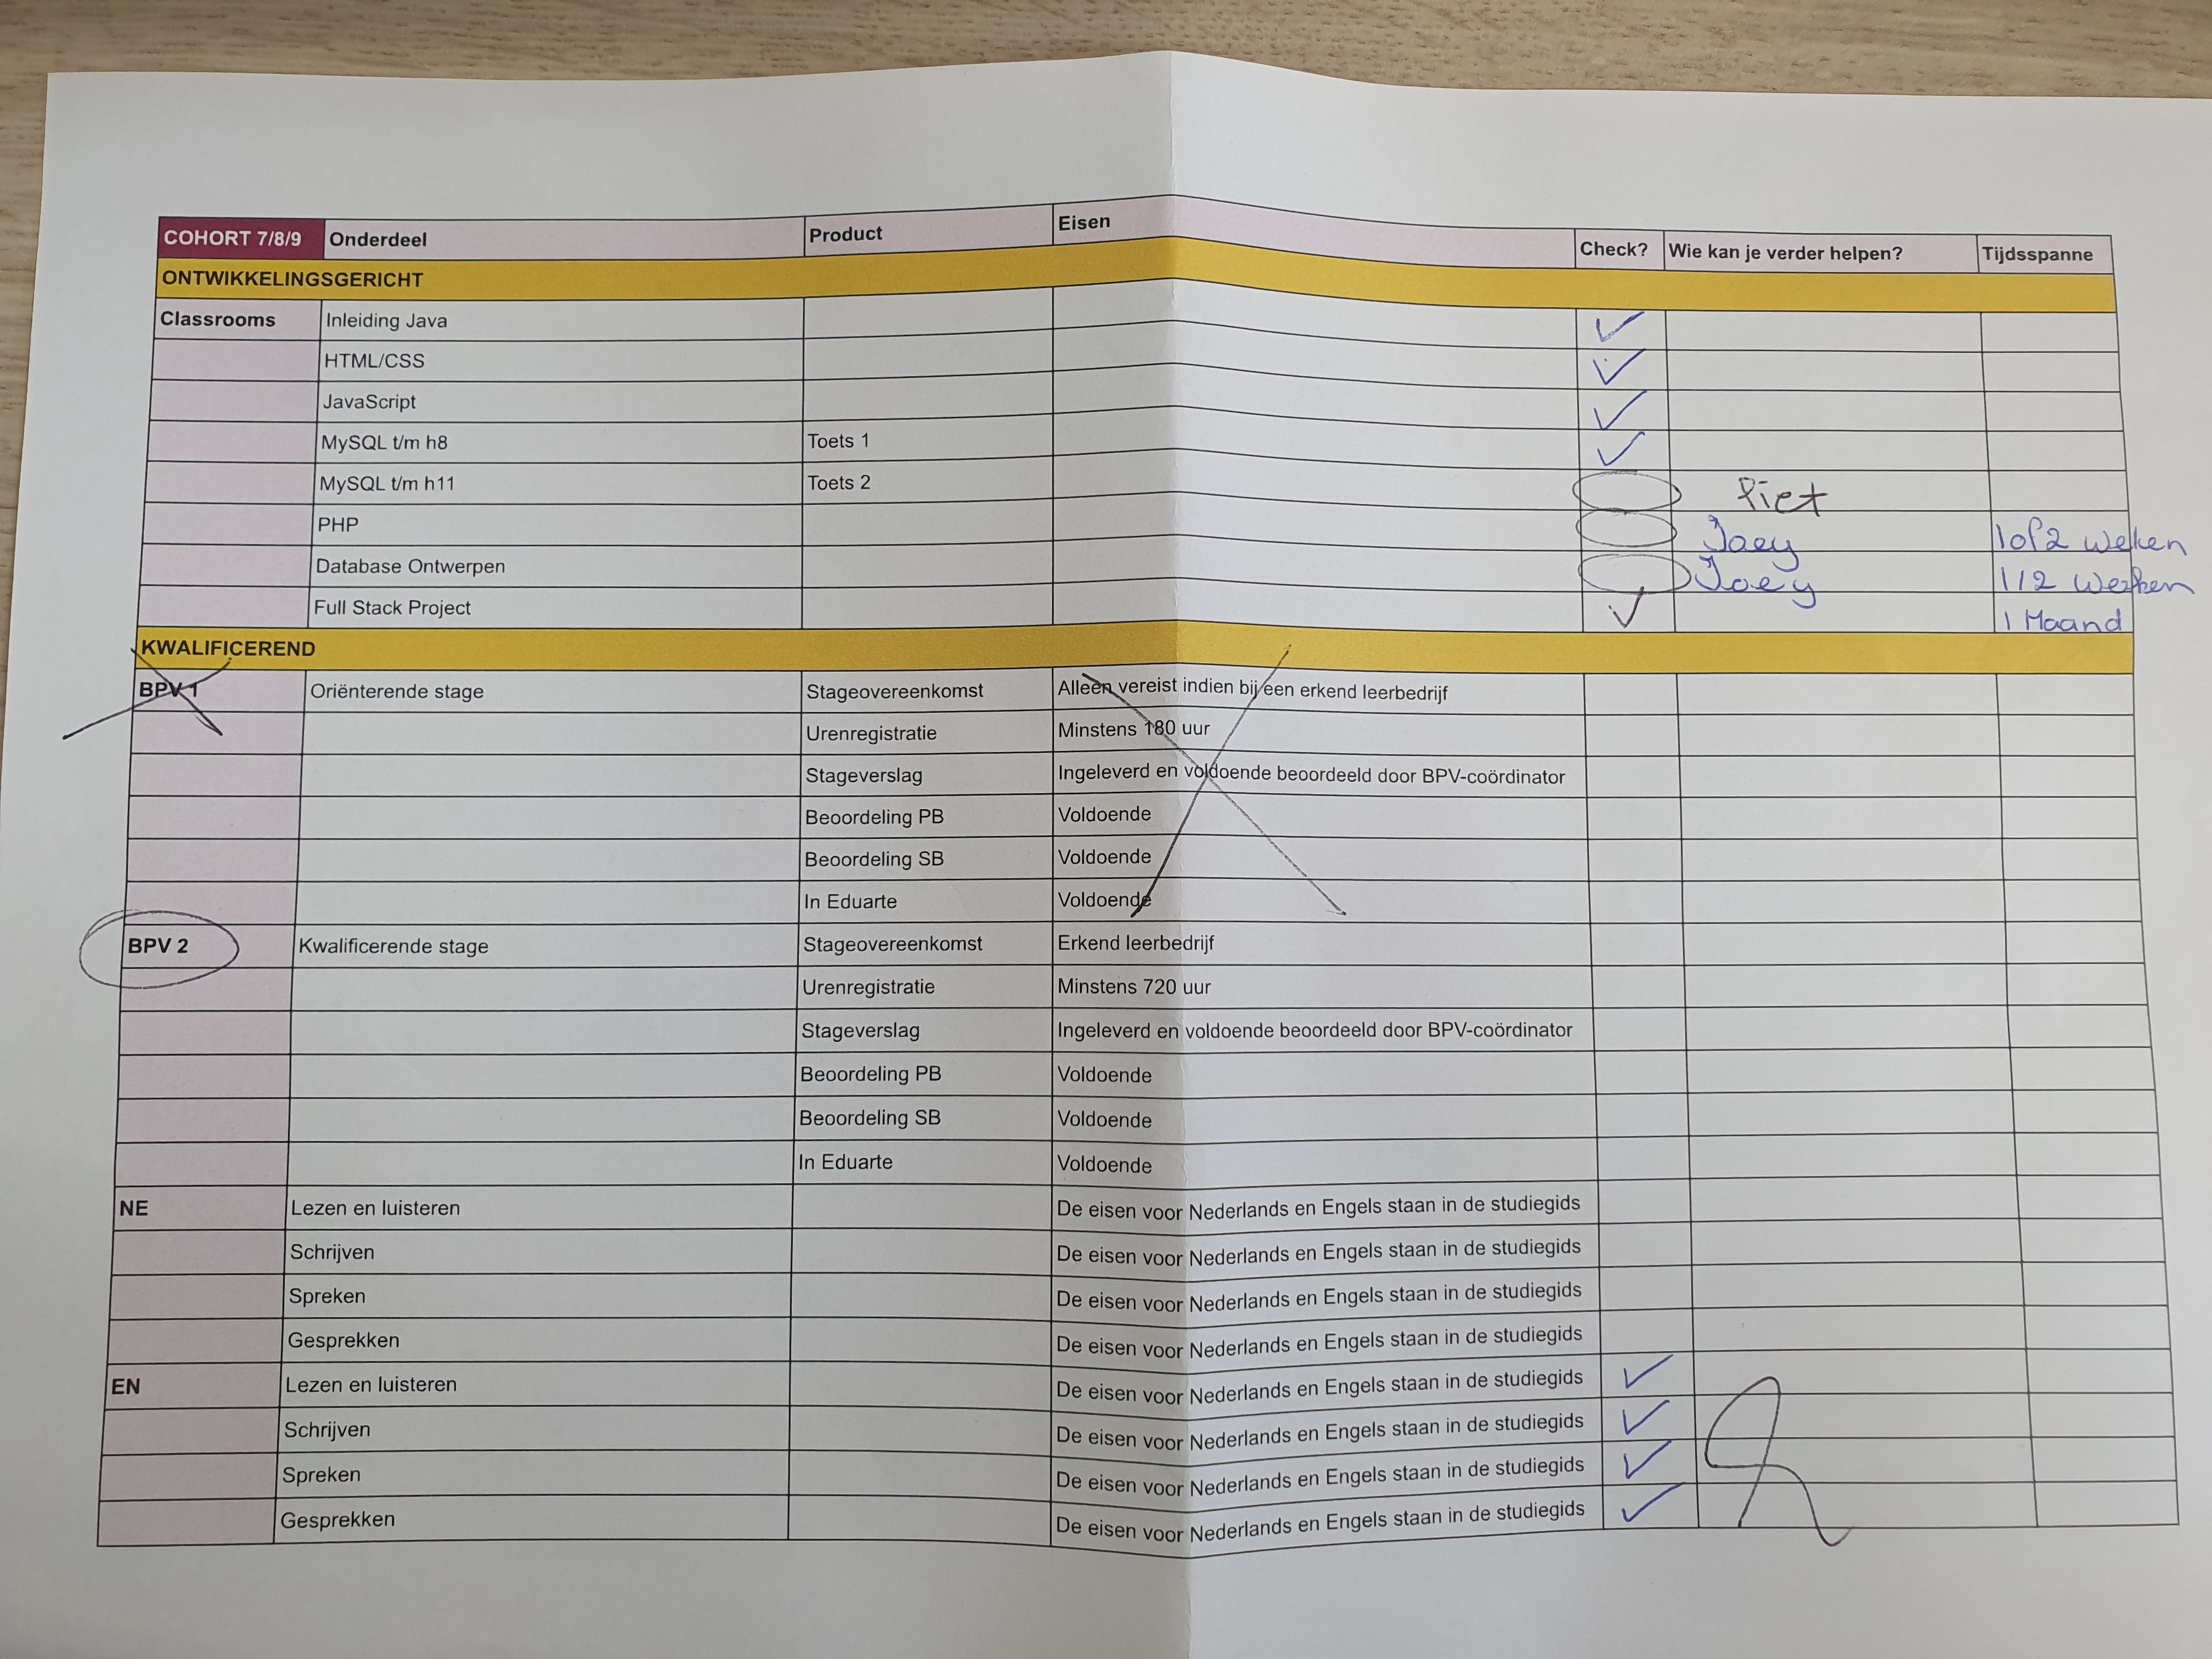 COHORT 7/8/9 Onderdeel Product Eisen Check? Wie kan je verder helpen? Tijdsspanne
ONTWIKKELINGSGERICHT
Classrooms Inleiding Java
HTML/CSS
JavaScript
MySQL t/m h8 Toets 1
MySQL t/m h11 Toets 2 Piet
PHP Joey 1 of 2 weken
Database Ontwerpen Joey 1/2 weken
Full Stack Project 1 Maand
KWALIFICEREND
BPV 1 Oriënterende stage Stageovereenkomst Alleen vereist indien bij een erkend leerbedrijf
Urenregistratie Minstens 180 uur
Stageverslag Ingeleverd en voldoende beoordeeld door BPV-coördinator
Beoordeling PB Voldoende
Beoordeling SB Voldoende
In Eduarte Voldoende
BPV 2 Kwalificerende stage Stageovereenkomst Erkend leerbedrijf
Urenregistratie Minstens 720 uur
Stageverslag Ingeleverd en voldoende beoordeeld door BPV-coördinator
Beoordeling PB Voldoende
Beoordeling SB Voldoende
In Eduarte Voldoende
NE Lezen en luisteren De eisen voor Nederlands en Engels staan in de studiegids
Schrijven De eisen voor Nederlands en Engels staan in de studiegids
Spreken De eisen voor Nederlands en Engels staan in de studiegids
Gesprekken De eisen voor Nederlands en Engels staan in de studiegids
EN Lezen en luisteren De eisen voor Nederlands en Engels staan in de studiegids
Schrijven De eisen voor Nederlands en Engels staan in de studiegids
Spreken De eisen voor Nederlands en Engels staan in de studiegids
Gesprekken De eisen voor Nederlands en Engels staan in de studiegids